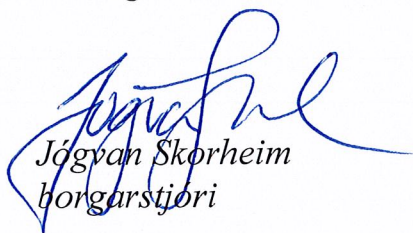 Jógvan Skorheim
borgarstjóri